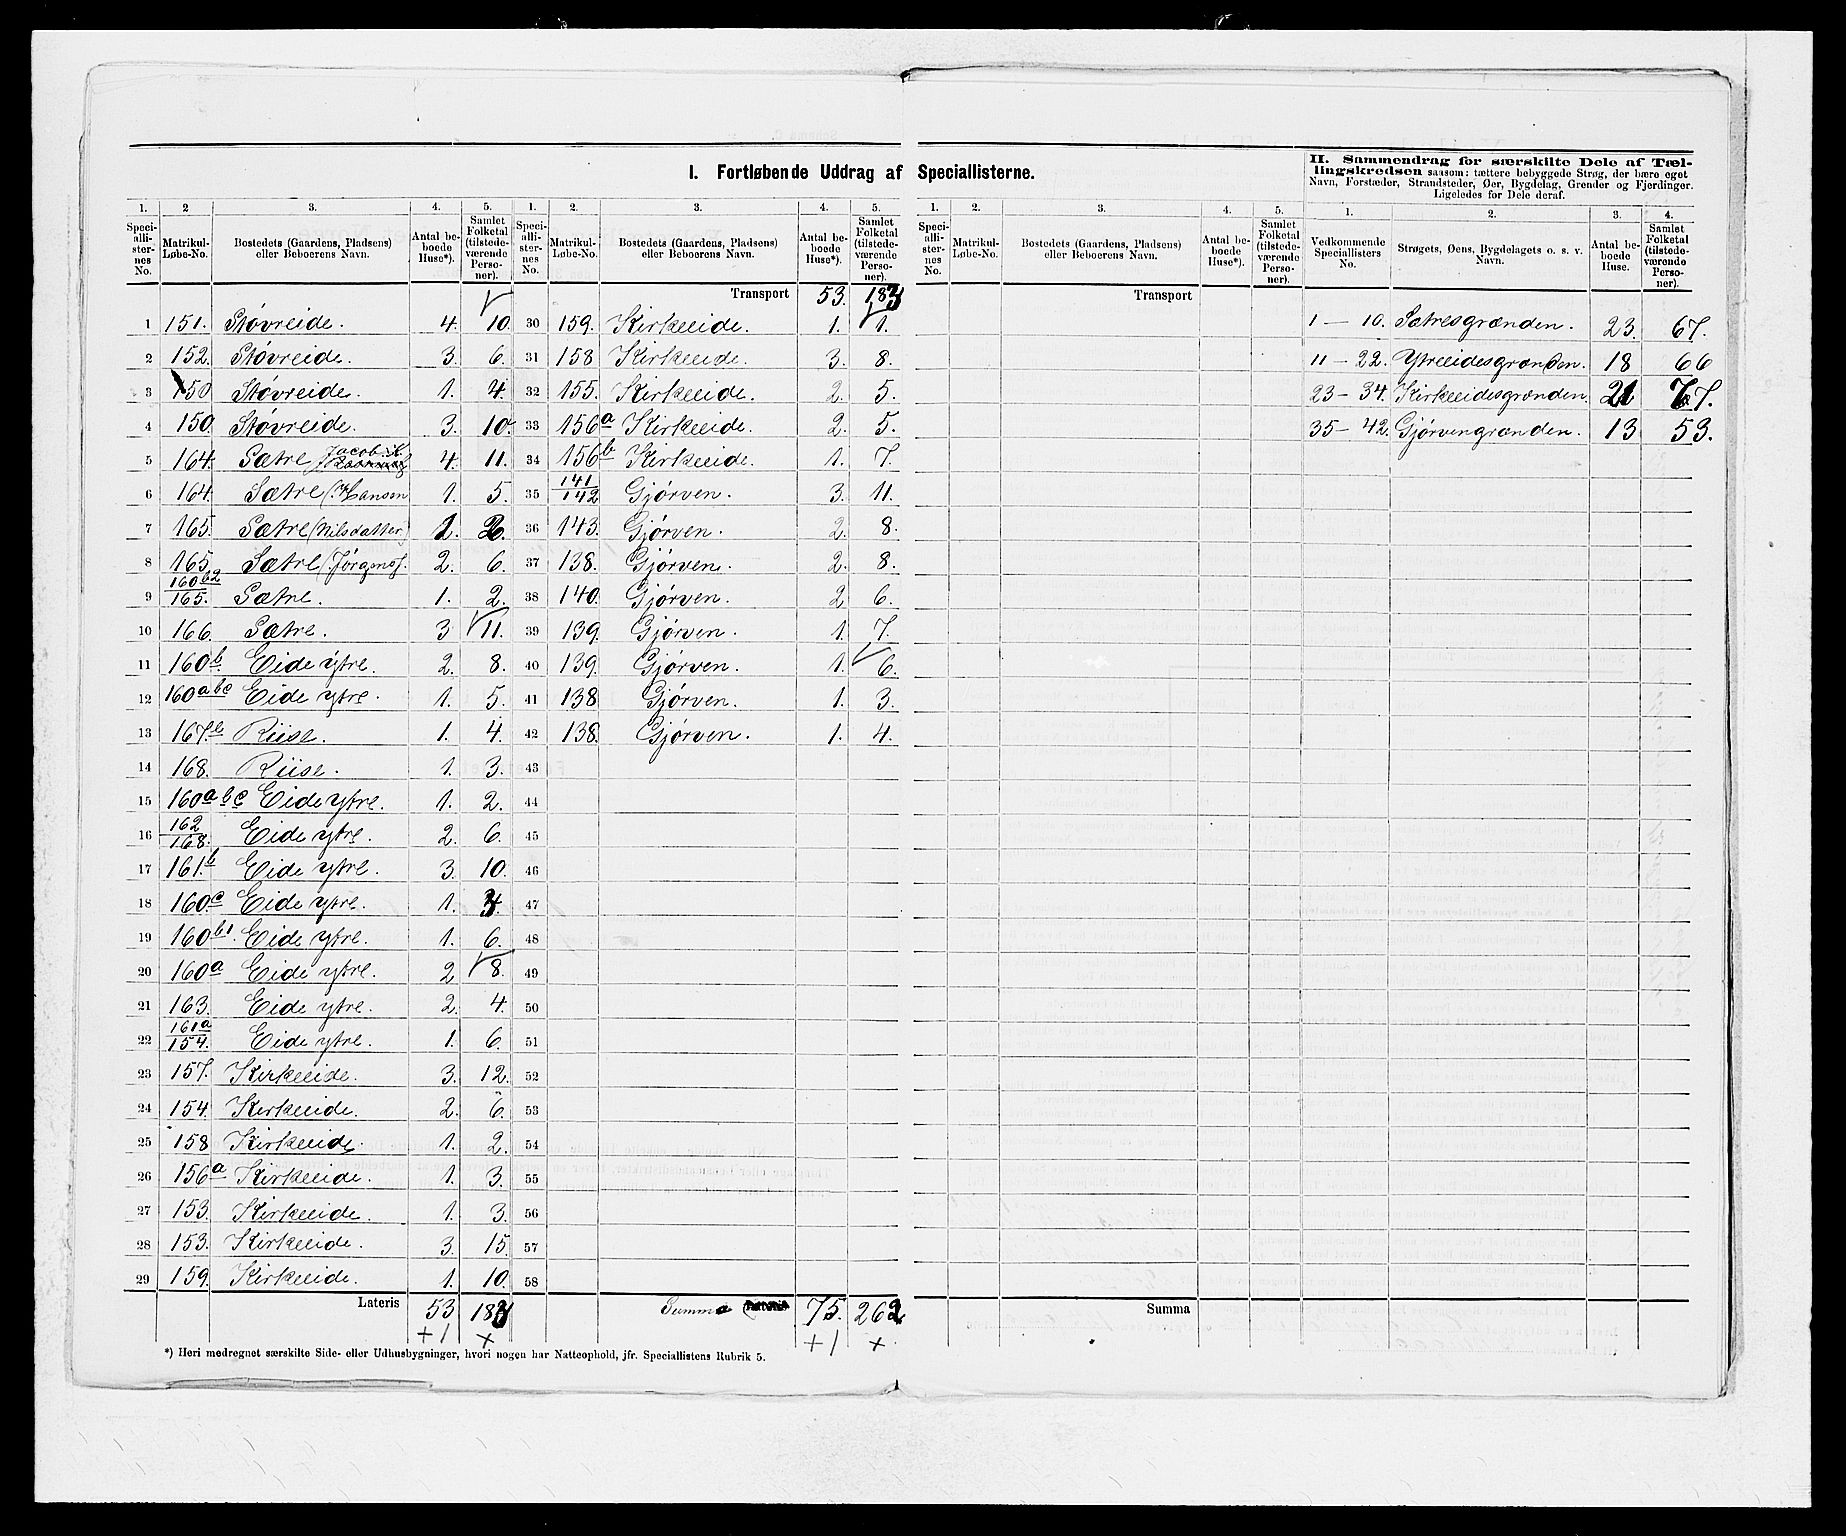 I. Fortløbende Uddrag af Speciallisterne.
II. Sammendrag for særskilte Dele af Tæl-
lingskredsen saasom: tættere bebyggede Strøg, der bære eget
Navn, Forstæder, Strandsteder, Øer, Bygdelag, Grender og Fjerdinger.
Ligeledes for Dele deraf.
1. 2 3. 4. 5. 1. 2. 3. 4. 5. 1. 2. 3. 4. 5. 1. 2. 3. 4.
Speci-alli-ster-nes No. Matrikul-Løbe-No. Bostedets (Gaardens, Pladsens) eller Beboerens Navn. Antal be-boede Huse*). Samlet Folketal (tilstede-værende Perso-ner).
Speci-alli-ster-nes No. Matrikul-Løbe-No. Bostedets (Gaardens, Pladsens) eller Beboerens Navn. Antal be-boede Huse*). Samlet Folketal (tilstede-værende Perso-ner).
Speci-alli-ster-nes No. Matrikul-Løbe-No. Bostedets (Gaardens, Pladsens) eller Beboerens Navn. Antal be-boede Huse*). Samlet Folketal (tilstede-værende Perso-ner).
Vedkommende Speciallisters No. Strøgets, Øens, Bygdelagets o. s. v. Navn. Antal be-boede Huse. Samlet Folketal (tilstede-værende Perso-ner).
1 151. Støvreide. 4. 10.
2 152. Støvreide. 3. 6.
3 150 Støvreide. 1. 4.
4 150. Støvreide. 3. 10.
5 164. Sætre Jacob 4. 11.
6 164. Sætre (Hansen 1. 5.
7 165. Sætre (Nilsdatter) 1. 2.
8 165. Sætre (Jørgens 2. 6.
9 160b2/165. Sætre. 1. 2.
10 166. Sætre. 3 11.
11 160b. Eide ytre. 2. 8.
12 160abc Eide ytre. 1. 5.
13 167.b Riise. 1. 4.
14 168. Riise. 1. 3.
15 160abc Eide ytre. 1. 2.
16 162/168. Eide ytre. 2. 6.
17 161.b Eide ytre. 3. 10.
18 160.c Eide ytre. 1.
19 160b1. Eide ytre. 1. 6.
20 160a Eide ytre. 2 8.
21 163. Eide ytre. 2. 4.
22 161a/154. Eide ytre. 1. 6.
23 157. Kirkeeide. 3. 12.
24 154. Kirkeeide. 2. 6.
25 158 Kirkeeide. 1. 2.
26 156a Kirkeeide. 1. 3.
27 153. Kirkeeide. 1. 3.
28 153. Kirkeeide. 3. 15.
29 159. Kirkeeide. 1. 10.
Lateris 53 183
+1 ×
Transport 53. 183
30 159. Kirkeeide. 1. 1.
31 158 Kirkeeide. 3. 8.
32 155. Kirkeeide. 2. 5.
33 156a Kirkeeide. 2. 5.
34 156b Kirkeeide. 1. 7.
35 141/142 Gjörven. 3. 11.
36 143. Gjörven. 2. 8.
37 138. Gjörven. 2. 8.
38 140. Gjörven. 2 6.
39 139. Gjörven. 1. 7.
40 139. Gjörven. 1. 6.
41 138 Gjörven. 1. 3.
42 138. Gjörven. 1. 4.
43
44
45
46
47
48
49
50
51
52
53
54
55
56
57
58
Summa 75. 262
+1 ×
Transport
Summa
1 — 10. Sætresgrænden. 23. 67.
11 — 22. Ytreeidesgrænden. 18 66
23 — 34. Kirkeeidesgrænden 21 77.
35 — 42. Gjörvengrænden. 13 53.
*) Heri medregnet særskilte Side- eller Udhusbygninger, hvori nogen har Natteophold, jfr. Speciallistens Rubrik 5.